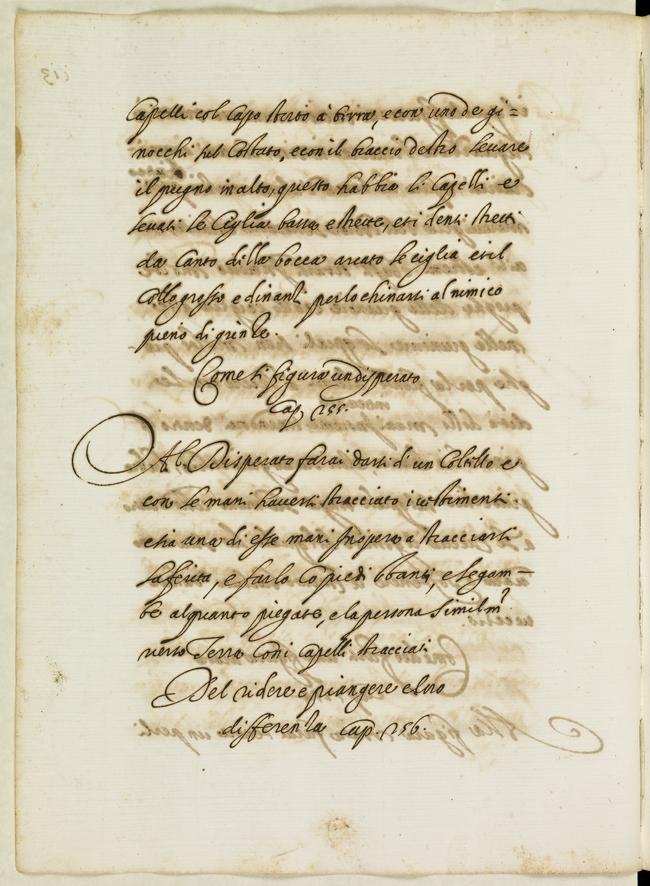 Capelli col capo storto à terra, e con uno de gi=
nocchi sul Costato, e con il braccio destro levare
il pugno in alto, questo habbia li Capelli e
levati le Ciglia basse e strette, et i denti stretti
da Canto della bocca arcate le ciglia et il
Collo grosso e dinanti per lo chinarsi al nimico
pieno di grinze.
Come si figura un disperato
cap. 255.
Al Disperato farai darsi d'un Coltello e
con le mani haversi stracciato i vestimenti
e sia una di esse mani in opera a stracciarsi
la ferita, e farlo Co piedi stanti, e le gam-
be alquanto piegate, e la persona similm.te
verso Terra Con i capelli stracciati
Del ridere e piangere e loro
differenza cap. 256.